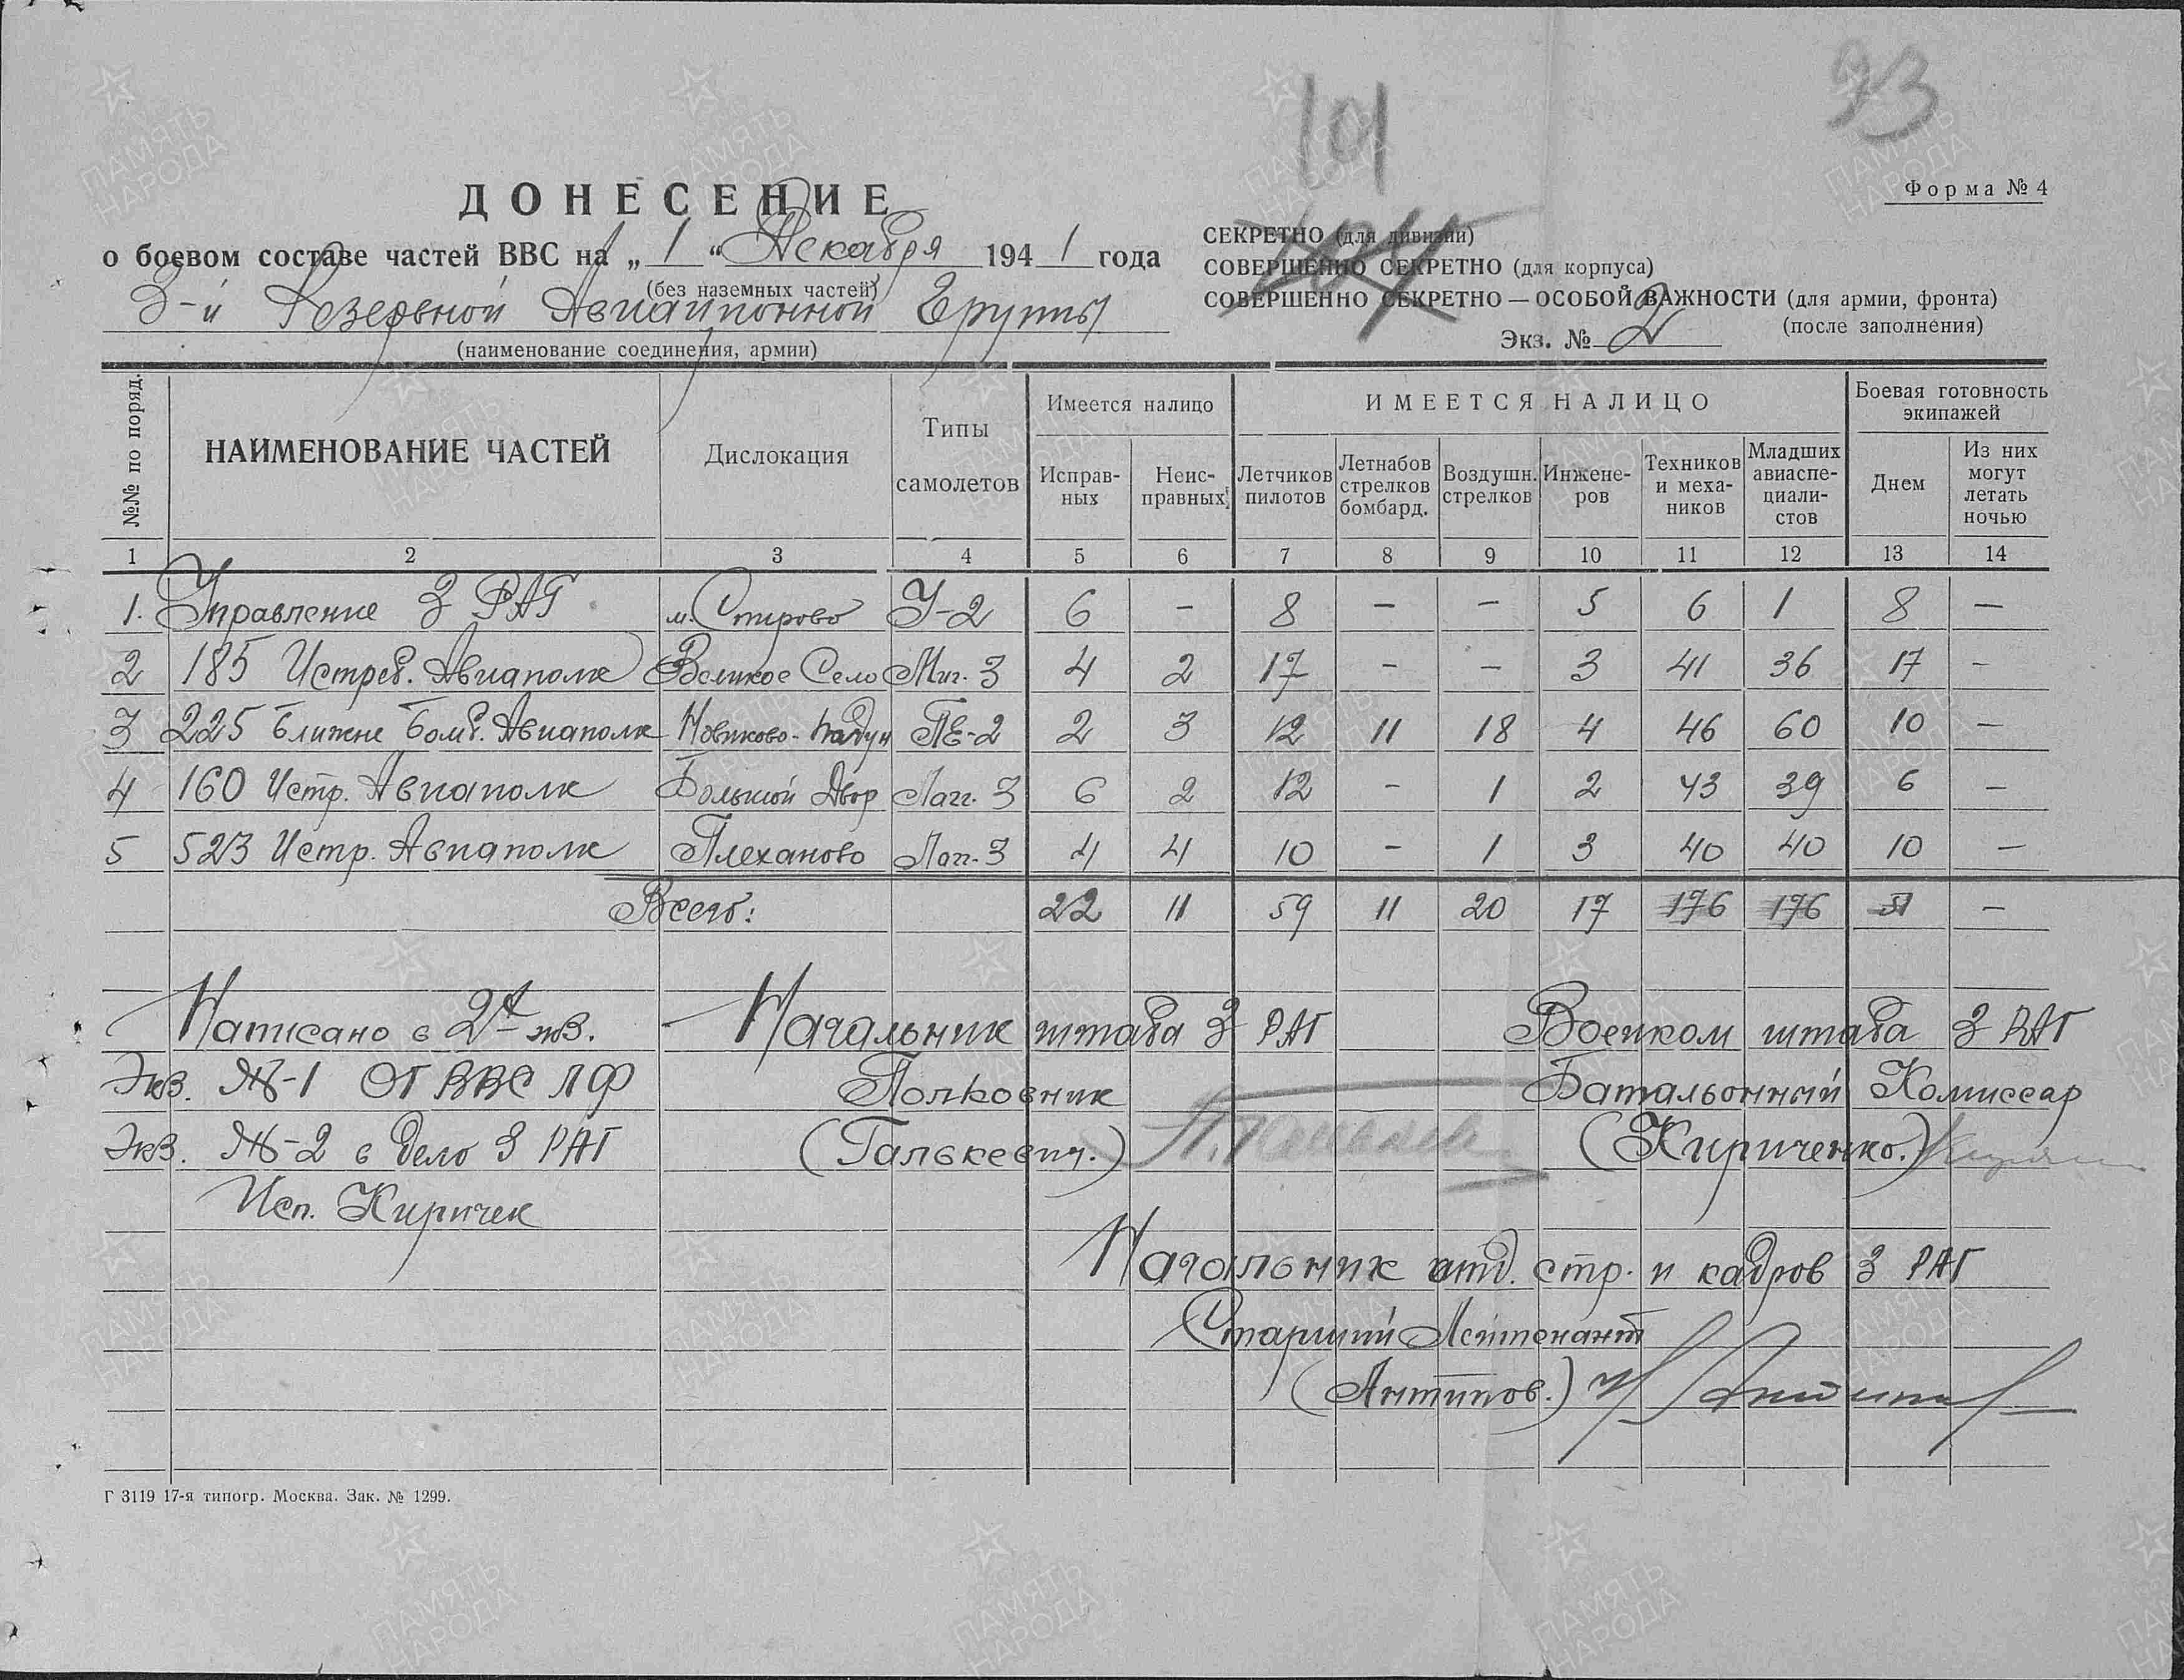 101
93
ДОНЕСЕНИЕ
Форма № 4
о боевом составе частей ВВС на „1“ Декабря 1941 года
(без наземных частей)
3-й Резервной Авиационной Группы
(наименование соединения, армии)
СЕКРЕТНО (для дивизии)
СОВЕРШЕННО СЕКРЕТНО (для корпуса)
СОВЕРШЕННО СЕКРЕТНО — ОСОБОЙ ВАЖНОСТИ (для армии, фронта)
Экз. № 2 (после заполнения)
№№ по поряд. НАИМЕНОВАНИЕ ЧАСТЕЙ Дислокация Типы самолетов Имеется налицо ИМЕЕТСЯ НАЛИЦО Боевая готовность экипажей
Исправ-ных Неис-правных Летчиков пилотов Летнабов стрелков бомбард. Воздушн. стрелков Инжене-ров Техников и меха-ников Младших авиаспе-циали-стов Днем Из них могут летать ночью
1 2 3 4 5 6 7 8 9 10 11 12 13 14
1. Управление 3 РАГ м. Стирово У-2 6 - 8 - - 5 6 1 8 -
2 185 Истреб. Авиаполк Великое Село Миг-3 4 2 17 - - 3 41 36 17 -
3 225 Ближне Бомб. Авиаполк Новиково- ПЕ-2 2 3 12 11 18 4 46 60 10 -
4 160 Истр. Авиаполк Большой Двор Лагг-3 6 2 12 - 1 2 43 39 6 -
5 523 Истр. Авиаполк Плеханово Лагг-3 4 4 10 - 1 3 40 40 10 -
Всего: 22 11 59 11 20 17 176 176 51 -
Написано в 2х экз.
Экз. №-1 ОГ ВВС ЛФ
Экз. №-2 в дело 3 РАГ
Исп. Киричек
Начальник штаба 3 РАГ
Полковник
(Галькевич.)
Военком штаба 3 РАГ
Батальонный Комиссар
(Кириченко.)
Начальник отд. стр. и кадров 3 РАГ
Старший Лейтенант
(Антипов.)
Г 3119 17-я типогр. Москва. Зак. № 1299.
ПАМЯТЬ НАРОДА